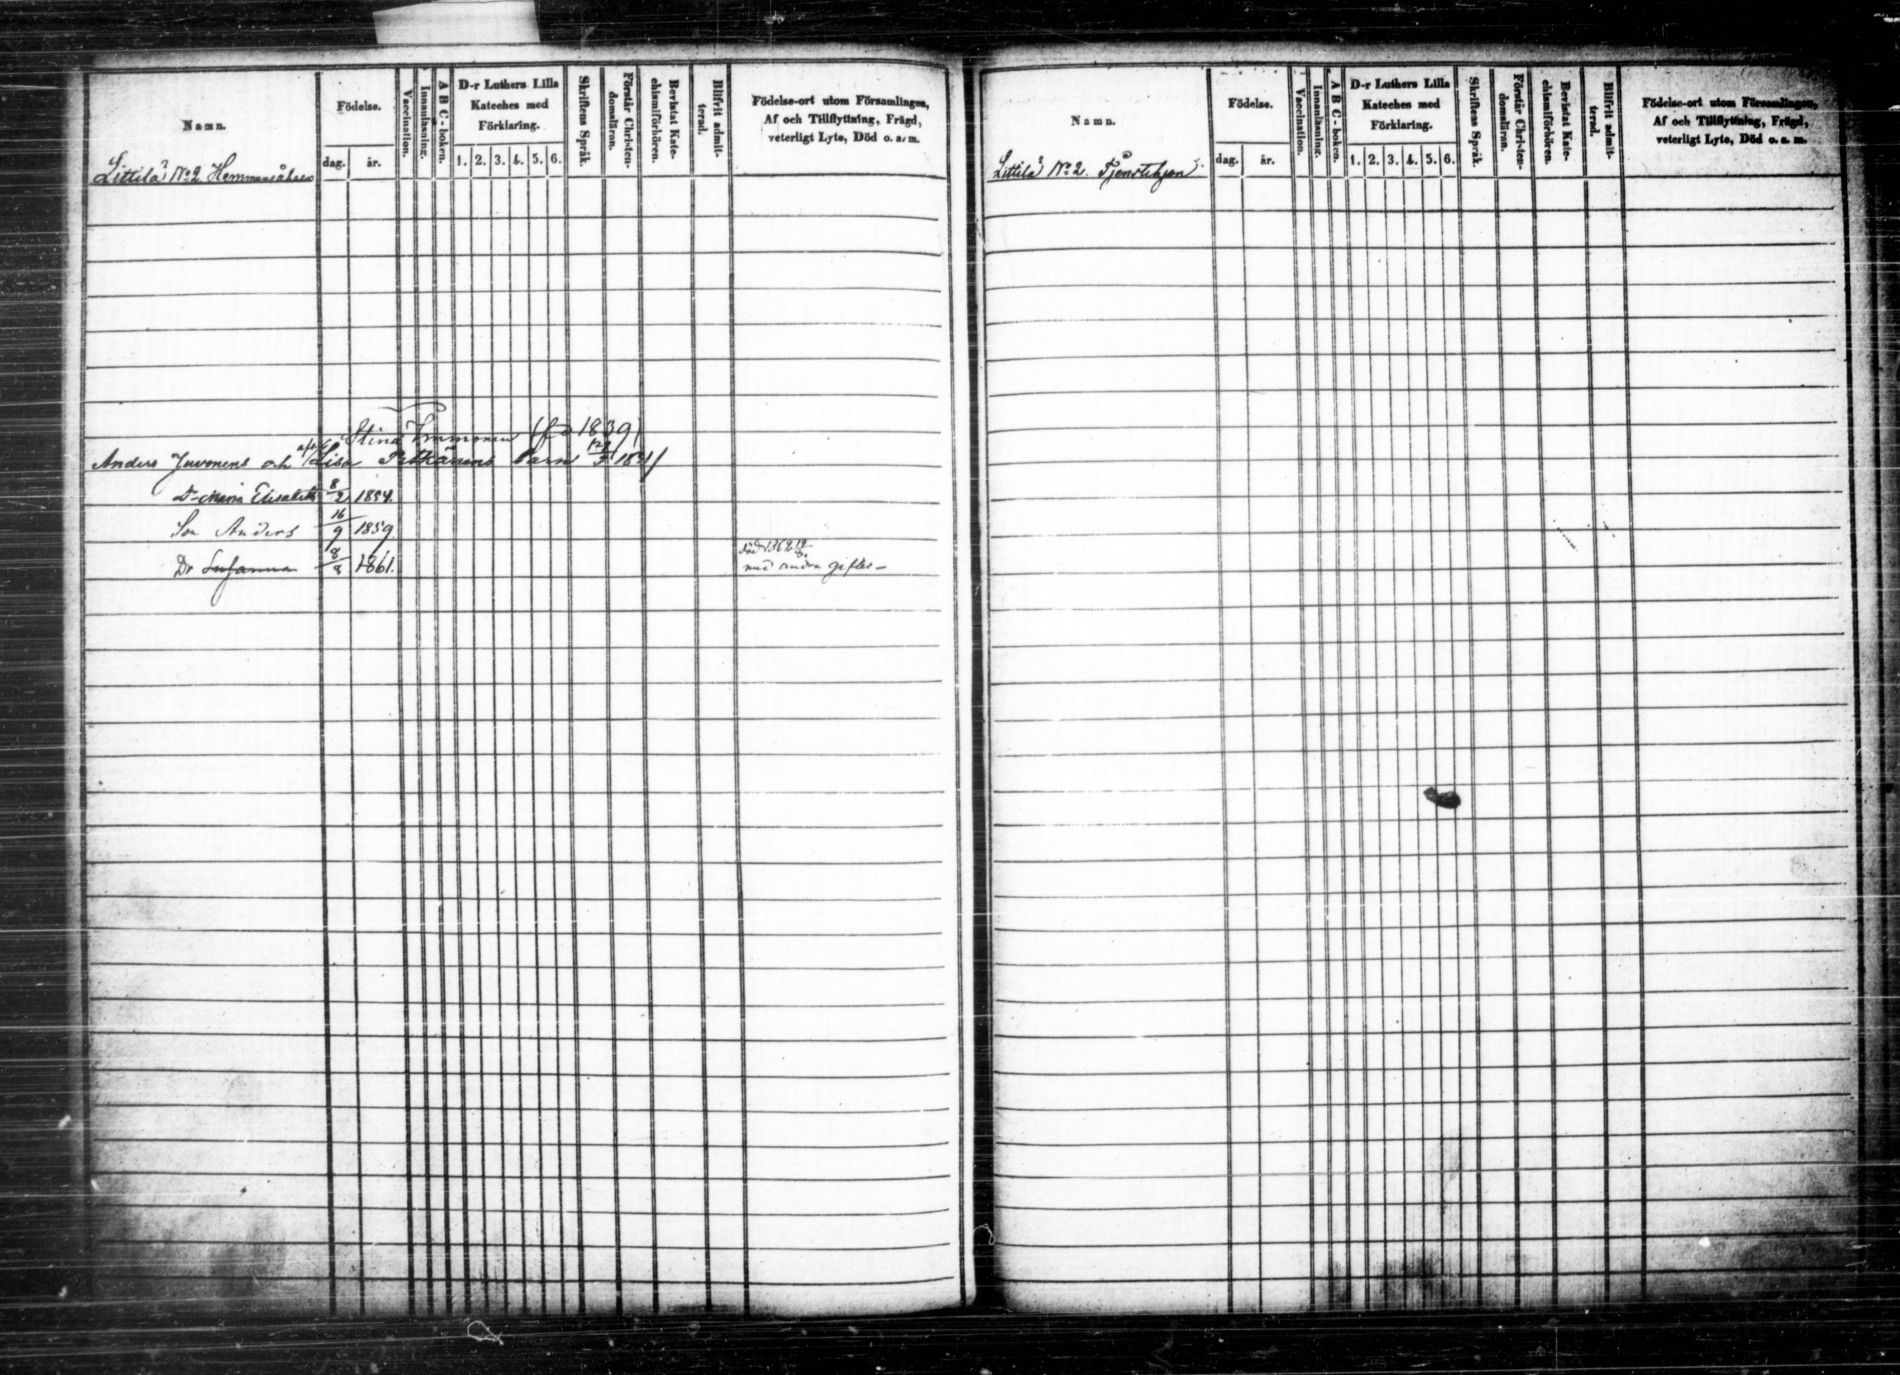 Namn.
Födelse.
dag. år.
Vaccination.
Innanläsning.
A B C-boken.
D-r Luthers Lilla
Kateches med
Förklaring.
1. 2. 3. 4. 5. 6.
Skriftens Språk.
Förstår Christen-
domsläran.
Bevistat Kate-
chismiförhören.
Blifvit admit-
terad.
Födelse-ort utom Församlingen,
Af och Tillflyttning, Frägd,
veterligt Lyte, Död o. a. m.
Littilä No 2 Hemmansåboer
Stina Immonen (fö 1839)
Anders Juvonens och Lisa Pitkänens barn
Dr Maria Elisabeth 8/2 1854.
Son Anders 16/9 1859
Dr Susanna 8/8 1861.
död
med andra giftet
Namn.
Födelse.
dag. år.
Vaccination.
Innanläsning.
A B C-boken.
D-r Luthers Lilla
Kateches med
Förklaring.
1. 2. 3. 4. 5. 6.
Skriftens Språk.
Förstår Christen-
domsläran.
Bevistat Kate-
chismiförhören.
Blifvit admit-
terad.
Födelse-ort utom Församlingen,
Af och Tillflyttning, Frägd,
veterligt Lyte, Död o. a. m.
Littilä No 2. Tjenstehjon